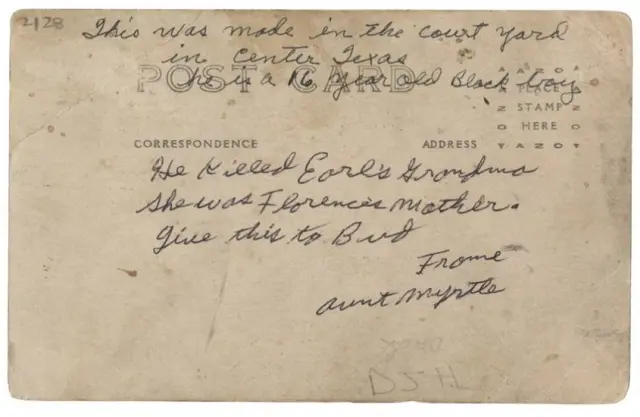 2128
This was made in the court yard
in Center Texas
he is a 16 year old Black boy
POST CARD
AZOA
PLACE
STAMP
HERE
AZOT
CORRESPONDENCE
ADDRESS
He Killed Earl's Grandma
She was Florence's Mother.
Give this to Bud
From
Aunt Myrtle
DSH